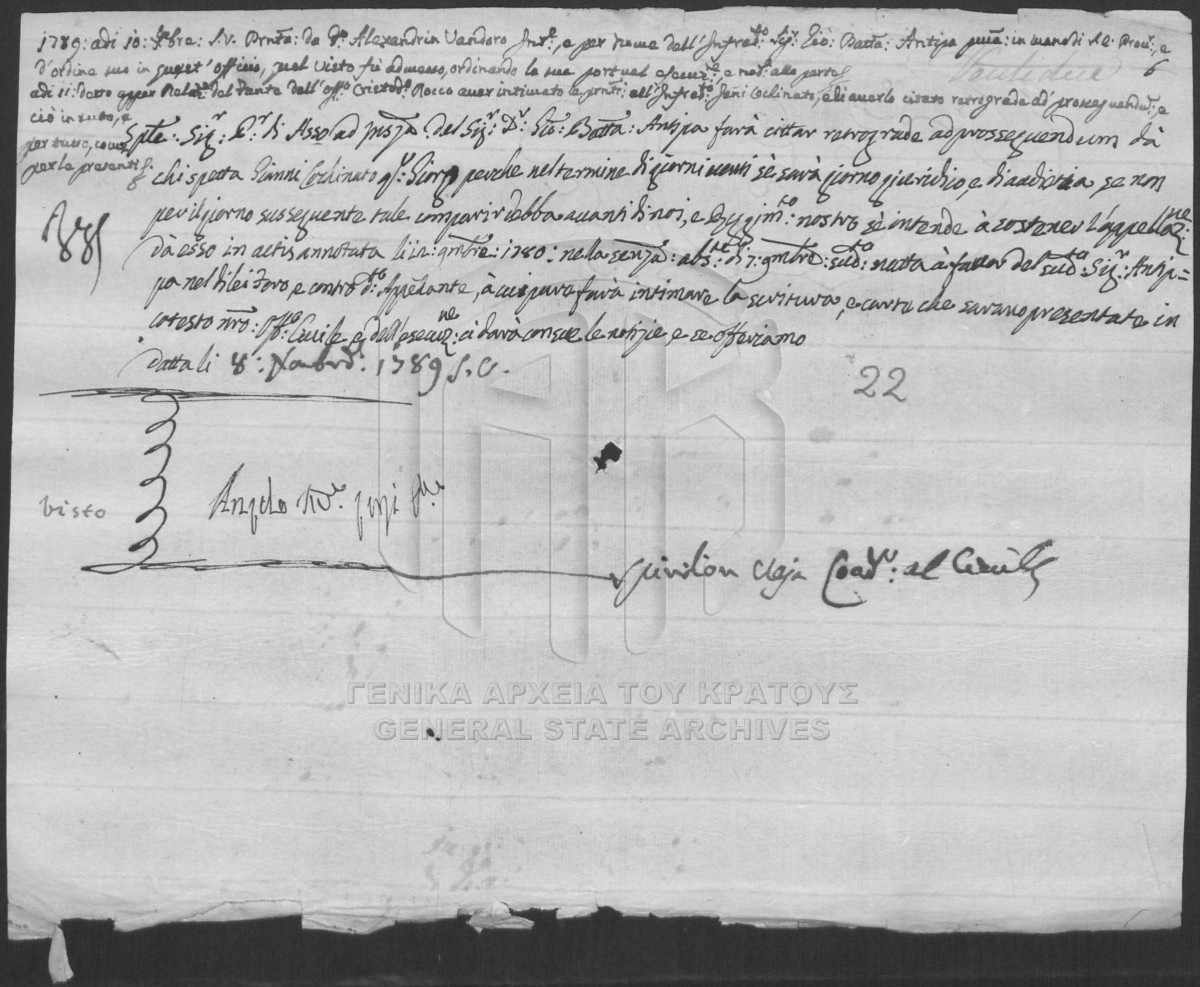 1789: adi 10: Xbre: S.V. Prnta: da Alexandria Vandoro Intte, e per nome dell'Infrado Sigr Gio: Batta: Antipa in mano di S.E. Provr: e
d'ordine suo in quest'officio, qual Visto fù admesso, ordinando la sua pontual esecuzne: e not: alla parte
adi 11: detto appar Relazne del Fante dell'offo: Cristodo Rocco aver intimato le prnti: all'Infrado Coclinato, e di averlo citato retrograde ad prossequendum: e
ciò in tutto, e
per tutto, come
per le presenti
6
Spte: Sigr: di Asso ad instza del Sigr: Dr: Gio: Batta: Antipa farà cittar retrograde ad prossequendum dà
chi spetta Gianni Coclinato qm: Giorgo perche nel termine di giorni venti sè sarà giorno giuridico, e di audienza se non
per il giorno susseguente tale comparir debba avanti di noi, e Regimto: nostro sè intende à sostener l'appellazne:
dà esso in actis annotata li 12: 9mbre: 1780: nella senza: absne di 7: 9mbre: sudto: natta à favor del sudto Sigr: Antip=
pa nel di lei Foro, e contro dto: Appelante, à cui pure farà intimare la scrittura, e carte che sarano presentate in
cotesto nro: offo: Civile, e dell'esecuzne: ci darà consuete notizie, e se offeriamo
Datta li 8: Novembre: 1789 S.V.
22
visto
Angelo
Coadre: al Civile
ΓΕΝΙΚΑ ΑΡΧΕΙΑ ΤΟΥ ΚΡΑΤΟΥΣ
GENERAL STATE ARCHIVES